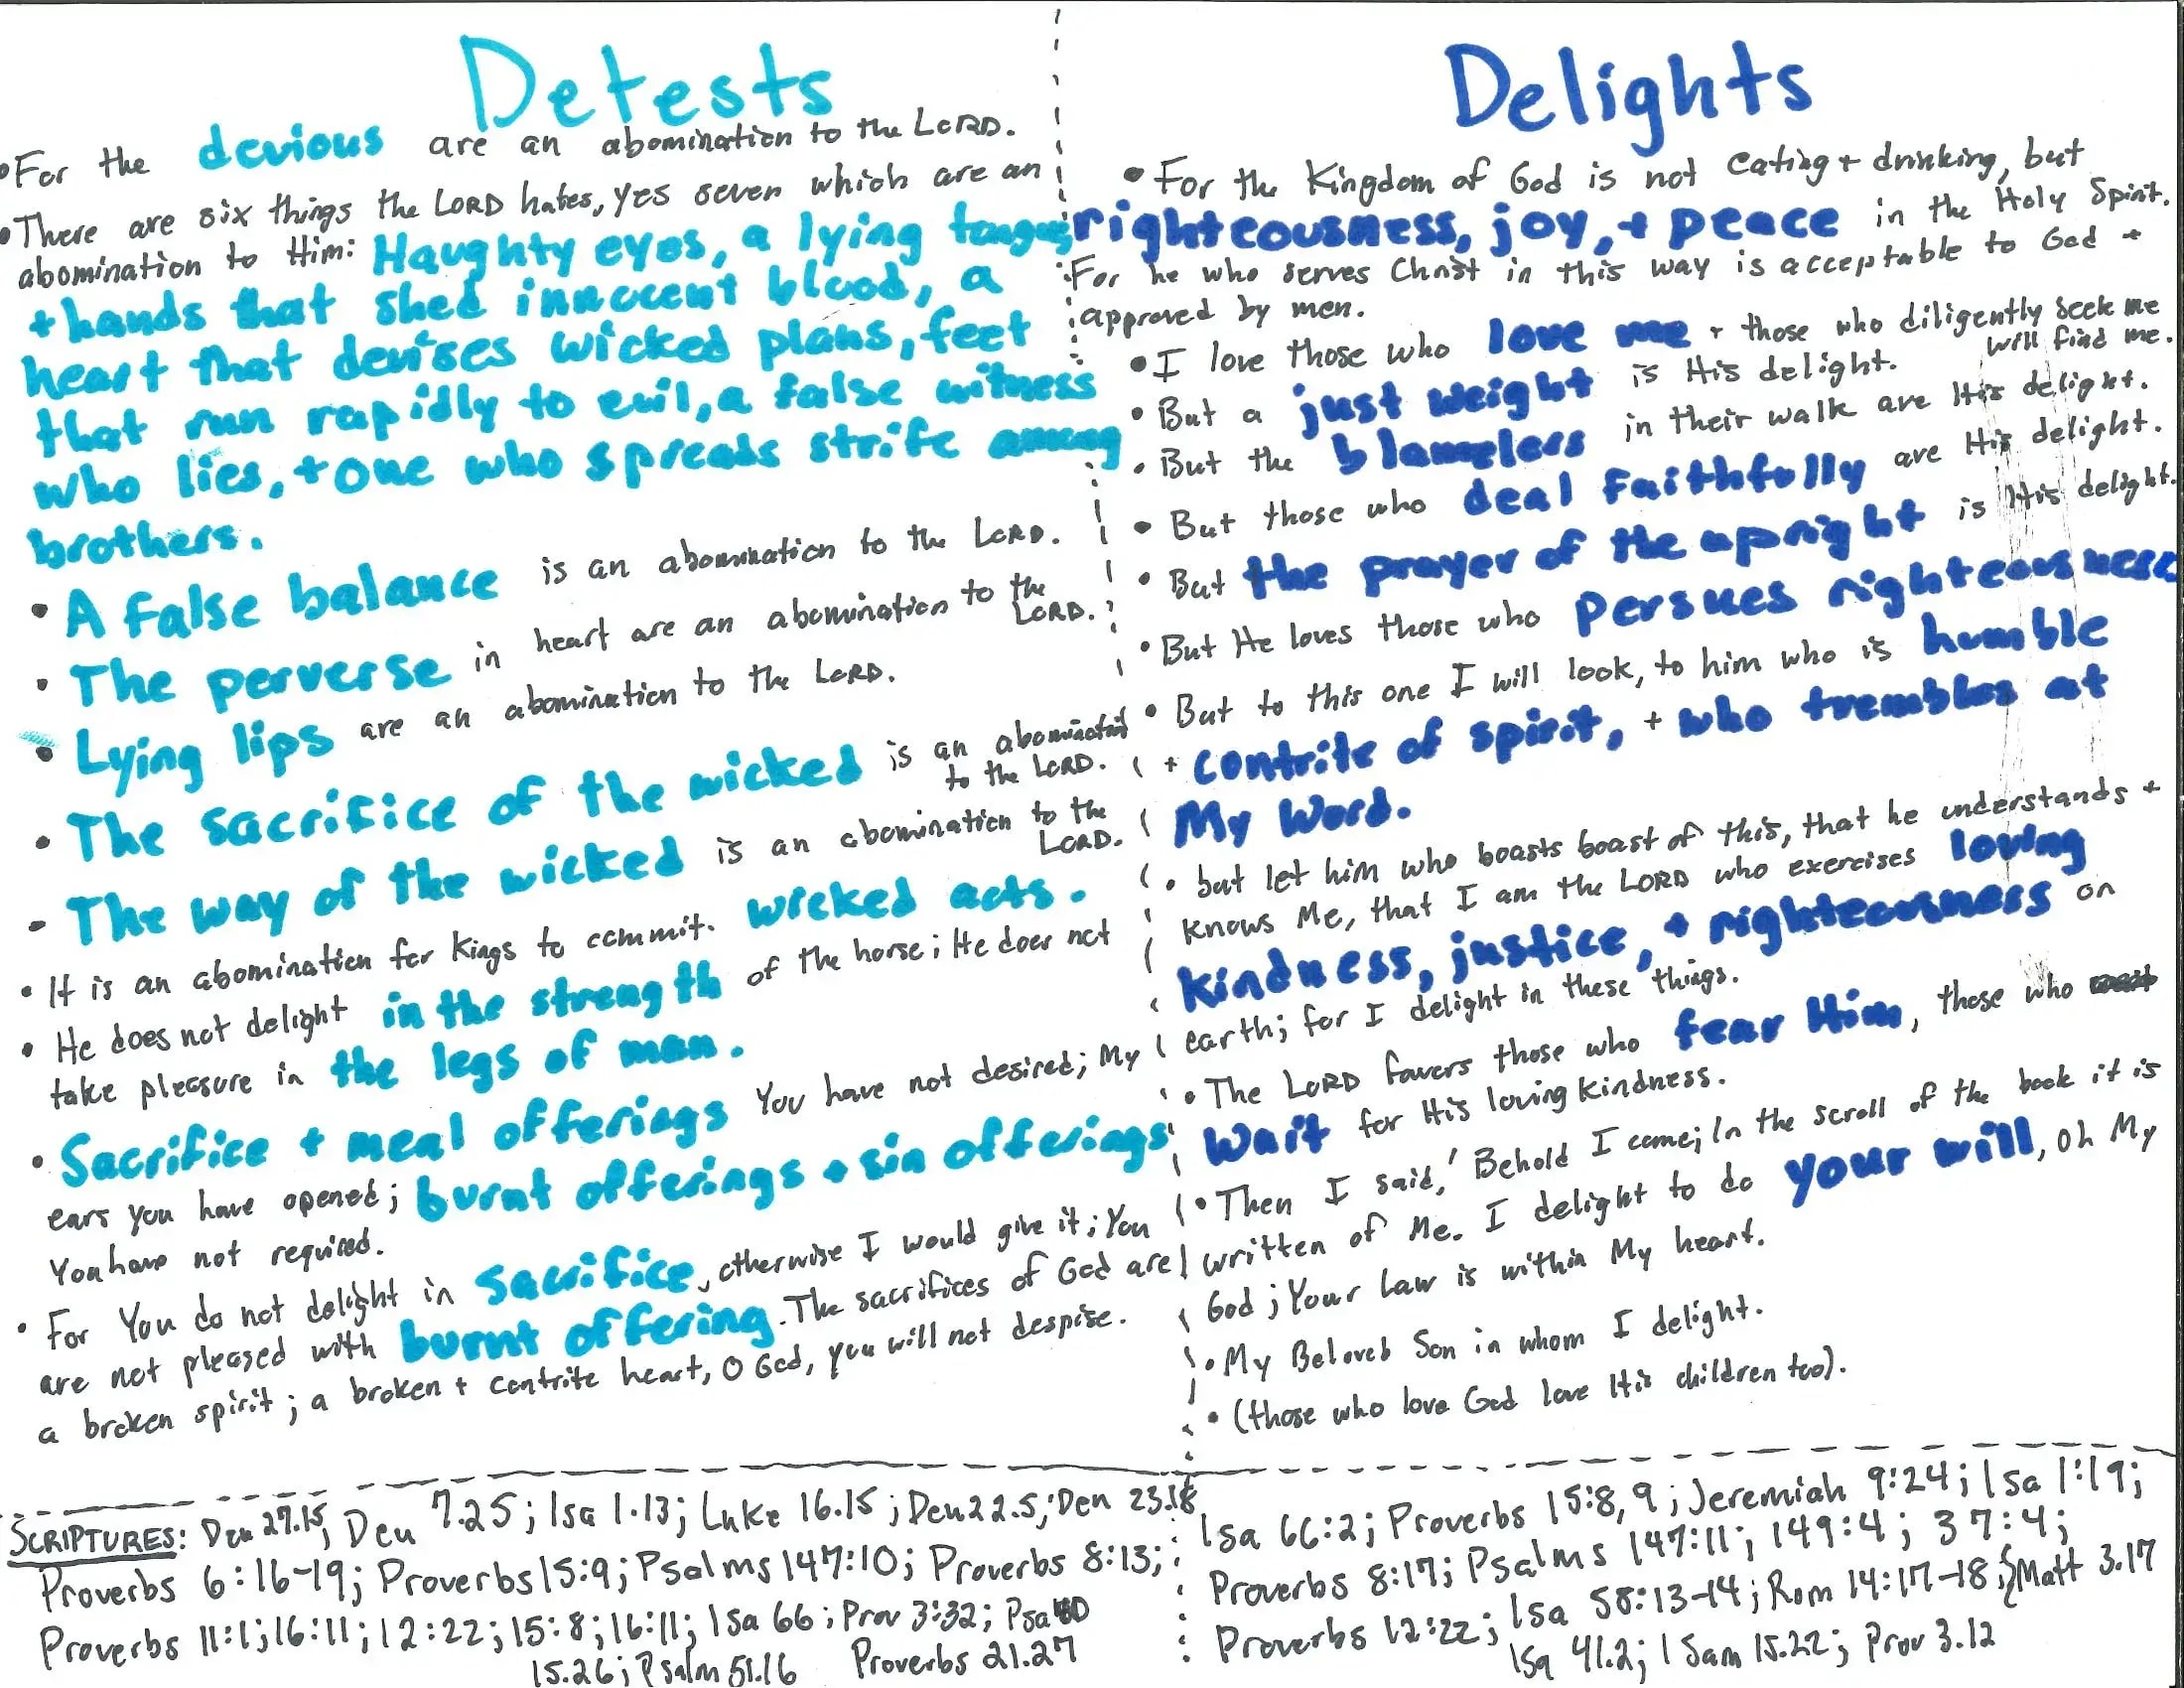 Detests
• For the devious are an abomination to the LORD.
• There are six things the LORD hates, yes seven which are an
abomination to Him: Haughty eyes, a lying tongue,
+ hands that shed innocent blood, a
heart that devises wicked plans, feet
that run rapidly to evil, a false witness
who lies, + one who spreads strife among
brothers.
• A false balance is an abomination to the LORD.
• The perverse in heart are an abomination to the
LORD.
• Lying lips are an abomination to the LORD.
• The sacrifice of the wicked is an abomination
to the LORD.
- The way of the wicked is an abomination to the
LORD.
• It is an abomination for Kings to commit. wicked acts.
• He does not delight in the strength of the horse; He does not
take pleasure in the legs of man.
• Sacrifice + meal offerings You have not desired; My
ears you have opened; burnt offerings + sin offerings
You have not required.
• For You do not delight in sacrifice, otherwise I would give it; You
are not pleased with burnt offering. The sacrifices of God are
a broken spirit; a broken + contrite heart, O God, you will not despise.
Delights
• For the Kingdom of God is not eating + drinking, but
righteousness, joy, + peace in the Holy Spirit.
For he who serves Christ in this way is acceptable to God +
approved by men.
• I love those who love me + those who diligently seek me
will find me.
• But a just weight is His delight.
• But the blameless in their walk are His delight.
• But those who deal faithfully are His delight.
• But the prayer of the upright is His delight.
• But He loves those who persues righteousness
• But to this one I will look, to him who is humble
+ contrite of spirit, + who trembles at
My Word.
• but let him who boasts boast of this, that he understands +
knows Me, that I am the LORD who exercises loving
kindness, justice, + righteousness on
earth; for I delight in these things.
• The LORD favors those who fear Him, those who
wait for His loving kindness.
• Then I said, 'Behold I come; In the scroll of the book it is
written of Me. I delight to do your will, oh My
God; Your Law is within My heart.
• My Beloved Son in whom I delight.
• (those who love God love His children too).
SCRIPTURES: Deu 27.15; Deu 7.25; Isa 1.13; Luke 16.15; Deu 22.5; Deu 23.18
Proverbs 6:16-19; Proverbs 15:9; Psalms 147:10; Proverbs 8:13;
Proverbs 11:1; 16:11; 12:22; 15:8; 16:11; Isa 66; Prov 3:32; Psa 40
15.26; Psalm 51.16 Proverbs 21.27
Isa 66:2; Proverbs 15:8,9; Jeremiah 9:24; Isa 1:19;
Proverbs 8:17; Psalms 147:11; 149:4; 37:4;
Proverbs 12:22; Isa 58:13-14; Rom 14:17-18; Matt 3.17
Isa 41.2; 1 Sam 15.22; Prov 3.12